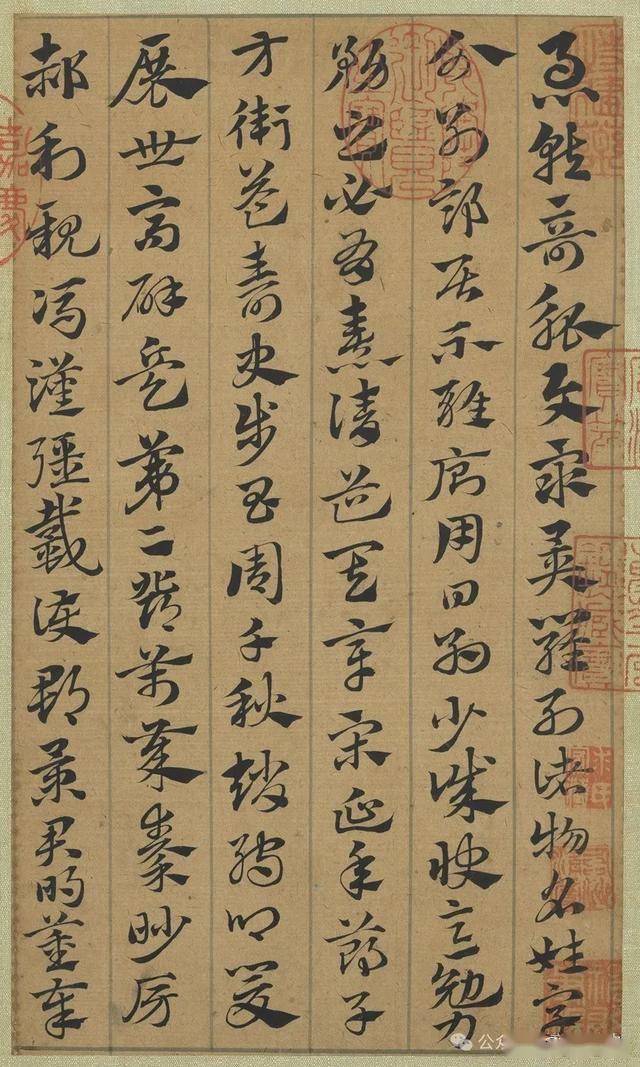 急就奇觚與衆異羅列諸物名姓字
分別部居不雜廁用日約少誠快意勉力
務之必有憙請道其章宋延年鄭子
方衛益壽史步昌周千秋趙孺卿爰
展世高辟兵第二鄧萬歲秦眇房
郝利親馮漢彊戴護郡景君明董奉
嘉慶
公众